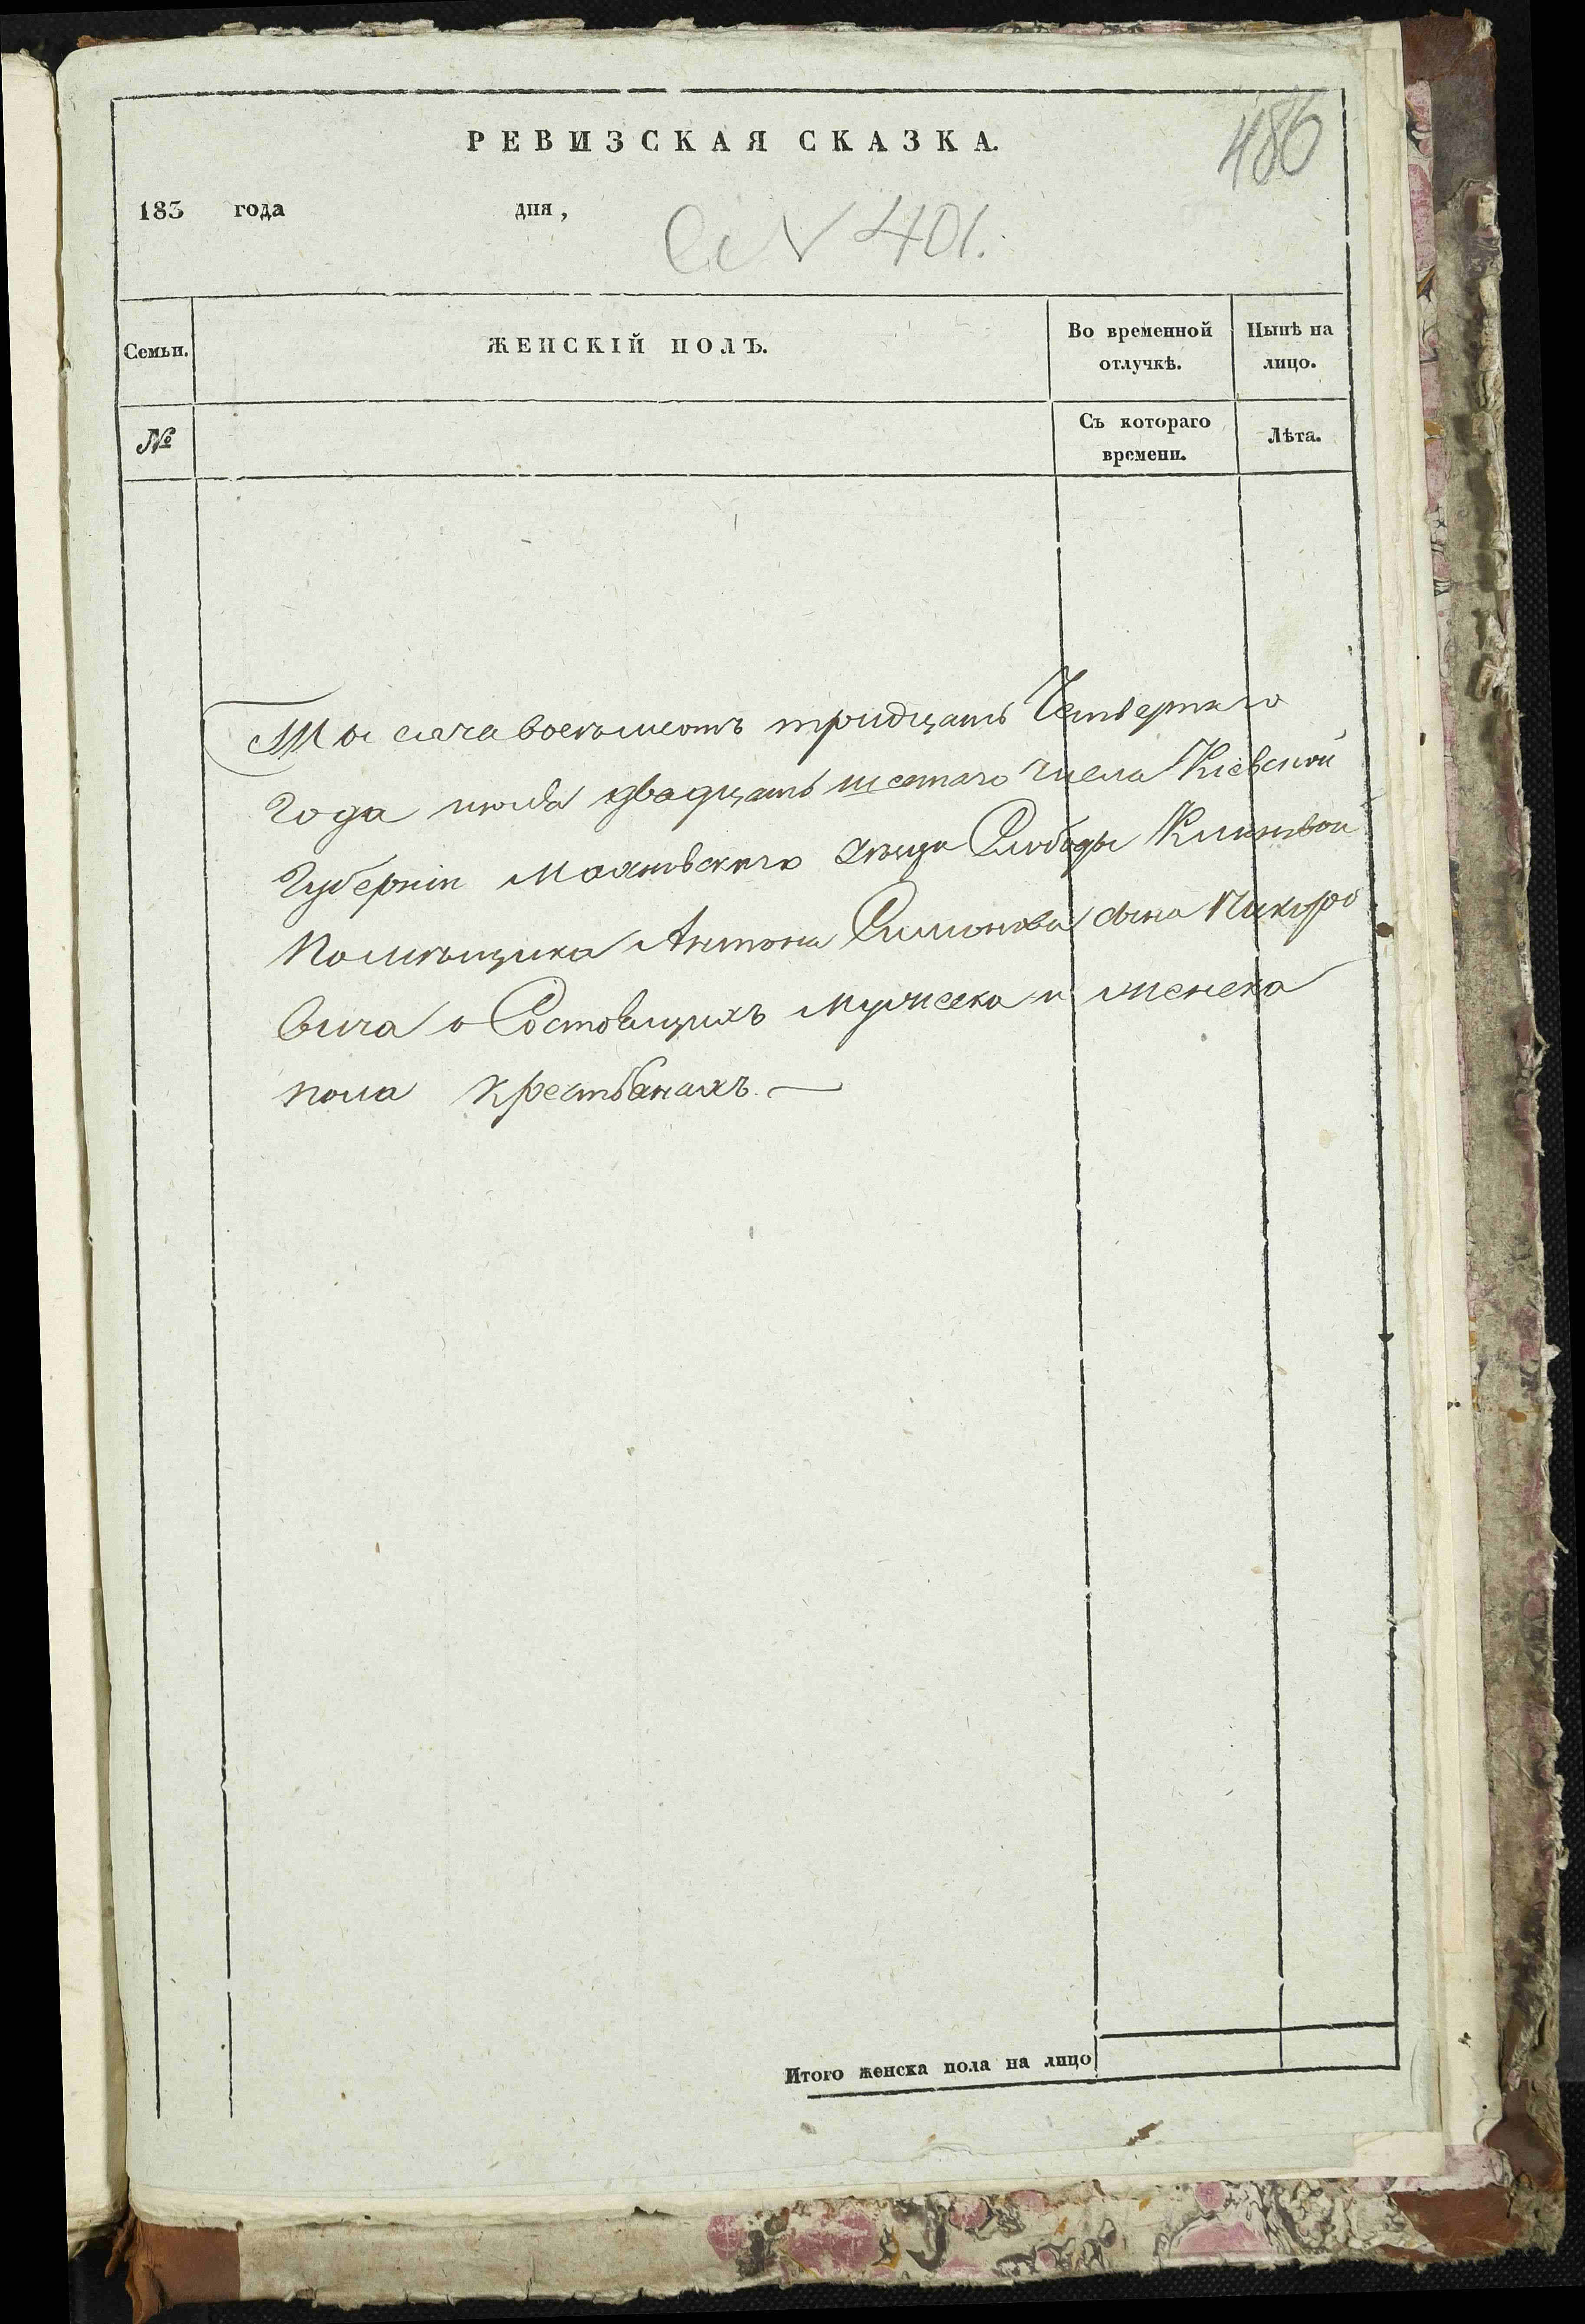 РЕВИЗСКАЯ СКАЗКА.
486
183 года дня,
№ 401.
Семьи.
ЖЕНСКІЙ ПОЛЪ.
Во временной отлучкѣ.
Нынѣ на лицо.
№
Съ котораго времени.
Лѣта.
Тысяча восемьсотъ тридцать Четвертаго
года июля двадцать шестаго числа Кіевской
Губерніи Махновскаго Слободы
Помѣщика Антона Симонова сына Никоро
вича о Состоящихъ мужеска и женска
пола крестьянахъ.—
Итого женска пола на лицо